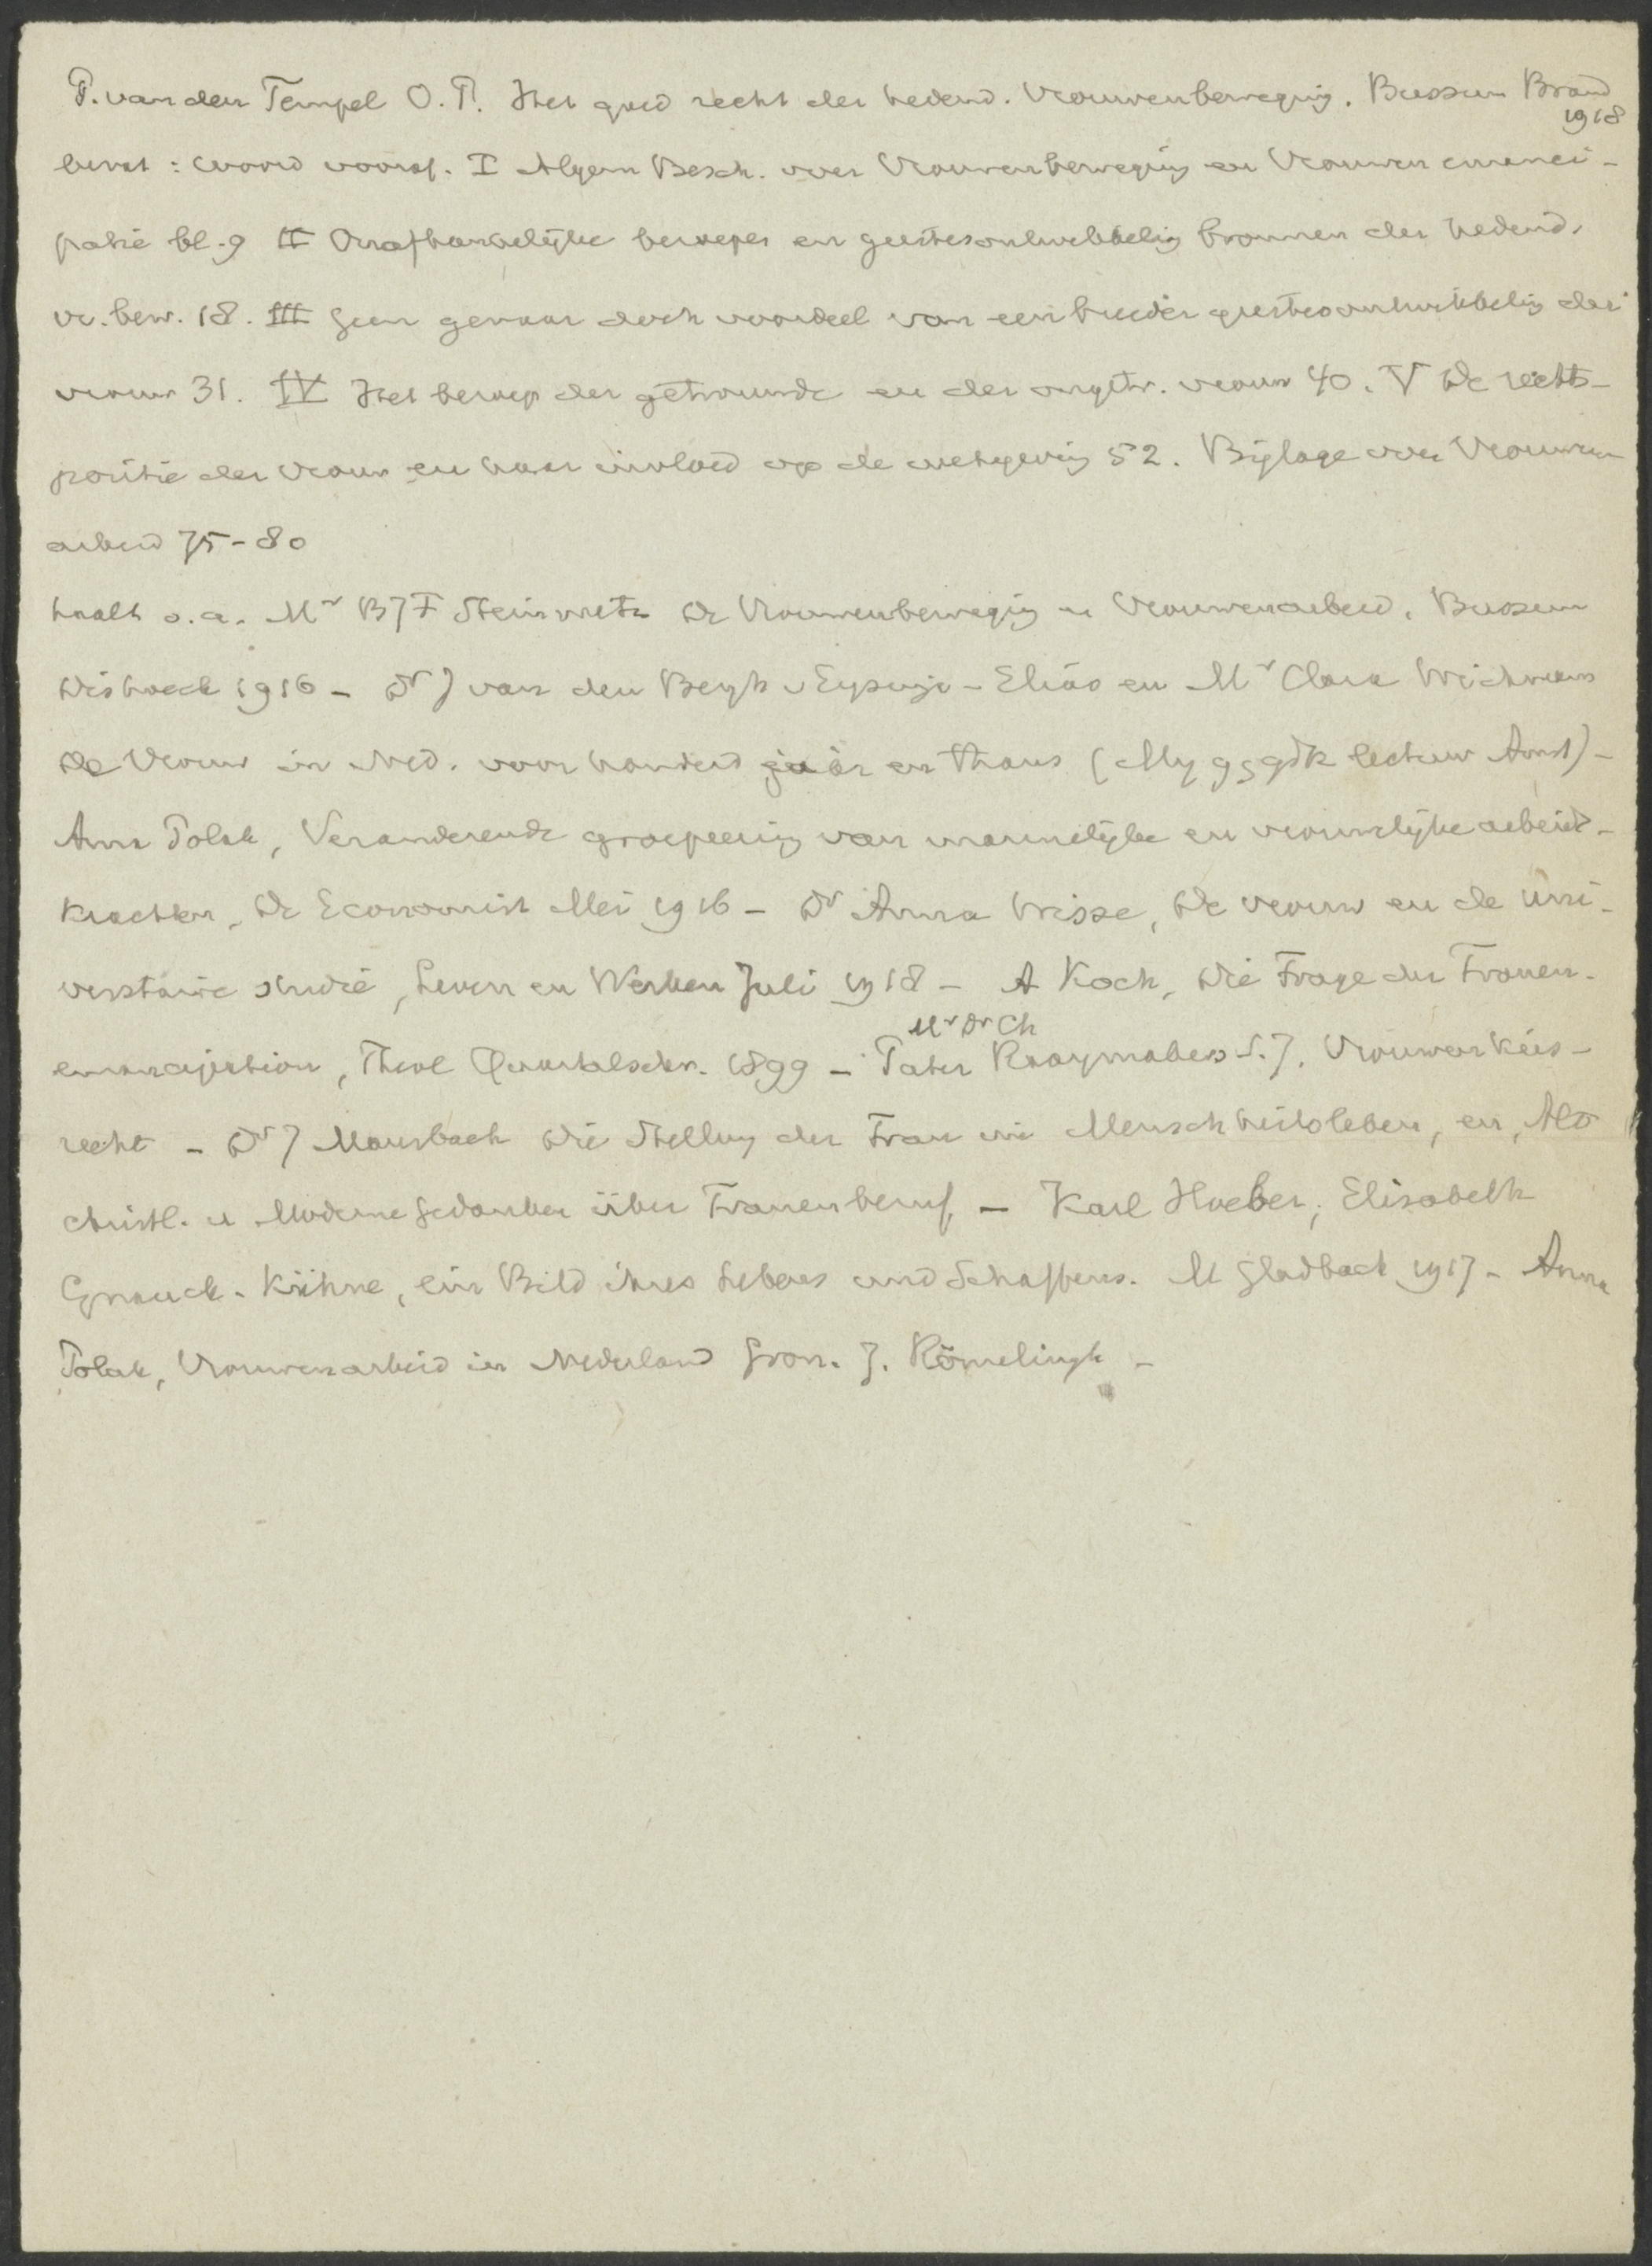 P. van den Tempel O.P. Het goed recht der hedend. Vrouwenbeweging. Bussum Brand
1918
bevat : woord vooraf. I Algem Besch. over Vrouwenbeweging en Vrouwen emanci-
patie bl. 9 II Onafhankelijke beroepen en geestesontwikkeling bronnen der hedend.
vr. bew. 18. III Geen gevaar doch voordeel van een breeder geestesontwikkeling der
vrouw 31. IV Het beroep der getrouwde en der ongetr. vrouw 40. V De rechts-
positie der vrouw en haar invloed op de wetgeving 52. Bijlage over Vrouwen
arbeid 75-80
haalt o.a. Mr BJF Steinmetz De Vrouwenbeweging en Vrouwenarbeid. Bussum
Dishoeck 1916 - Dr J van den Bergh v Eysinga - Elias en Mr Clara Wichmann
De Vrouw in Ned. voor honderd jaar en thans (My g g gdk lectuur Amst) -
Anna Polak, Veranderende groepeering van mannelijke en vrouwelijke arbeids-
krachten, De Economist Mei 1916 - Dr Anna Wisse, De vrouw en de uni-
versitaire studie, Leven en Werken Juli 1918 - A Koch, Die Frage der Frauen-
Mr Dr Ch
emancipation, Theol Quartalschr. 1899 - Pater Raaymakers S.J. Vrouwenkies-
recht - Dr J Mausbach Die Stellung der Frau im Menschheitsleben, en, Alt
christl. u Moderne Gedanken über Frauenberuf, - Karl Hoeber, Elisabeth
Gnauck-Kühne, ein Bild ihres Lebens und Schaffens. M Gladbach 1917 - Anna
Polak, Vrouwenarbeid in Nederland Gron. J. Römelingh -